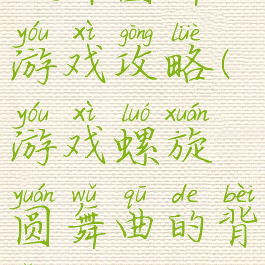 yóu xì gōng lüè
游戏攻略(
yóu xì luó xuán
游戏螺旋
yuán wǔ qū de bèi
圆舞曲的背